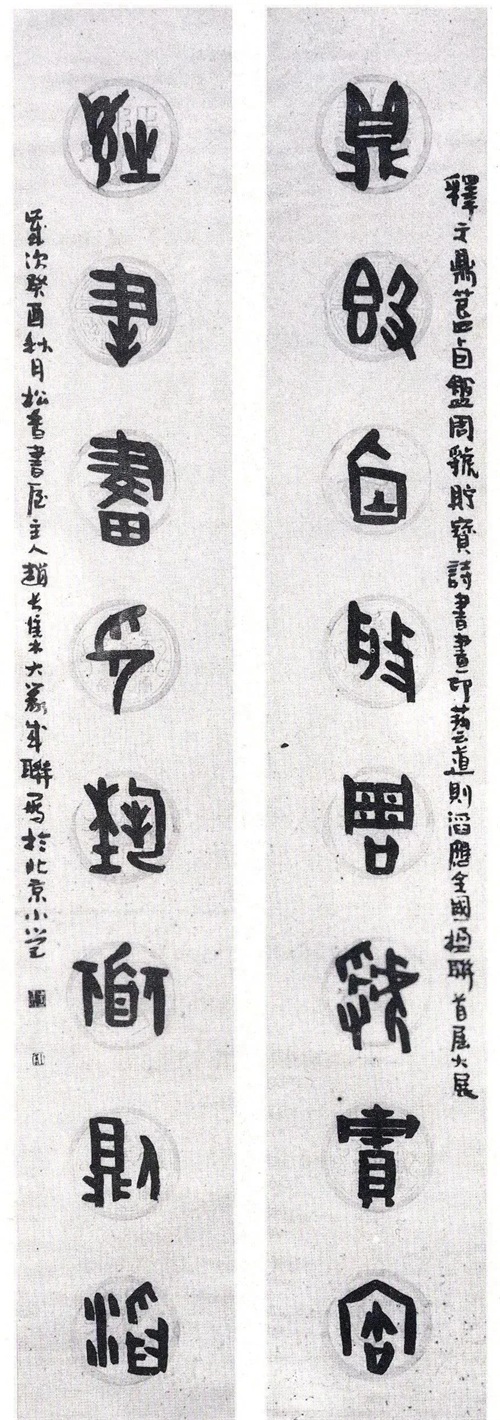 釋文鼎簋卣盤周虢貯寶詩書畫印藝道則滔應全國楹聯首屆大展
鼎𣪘卣般周虢貯寶
詩書畫印藝道則滔
歲次癸酉秋月松香書屋主人趙大篆成聯寫於北京小